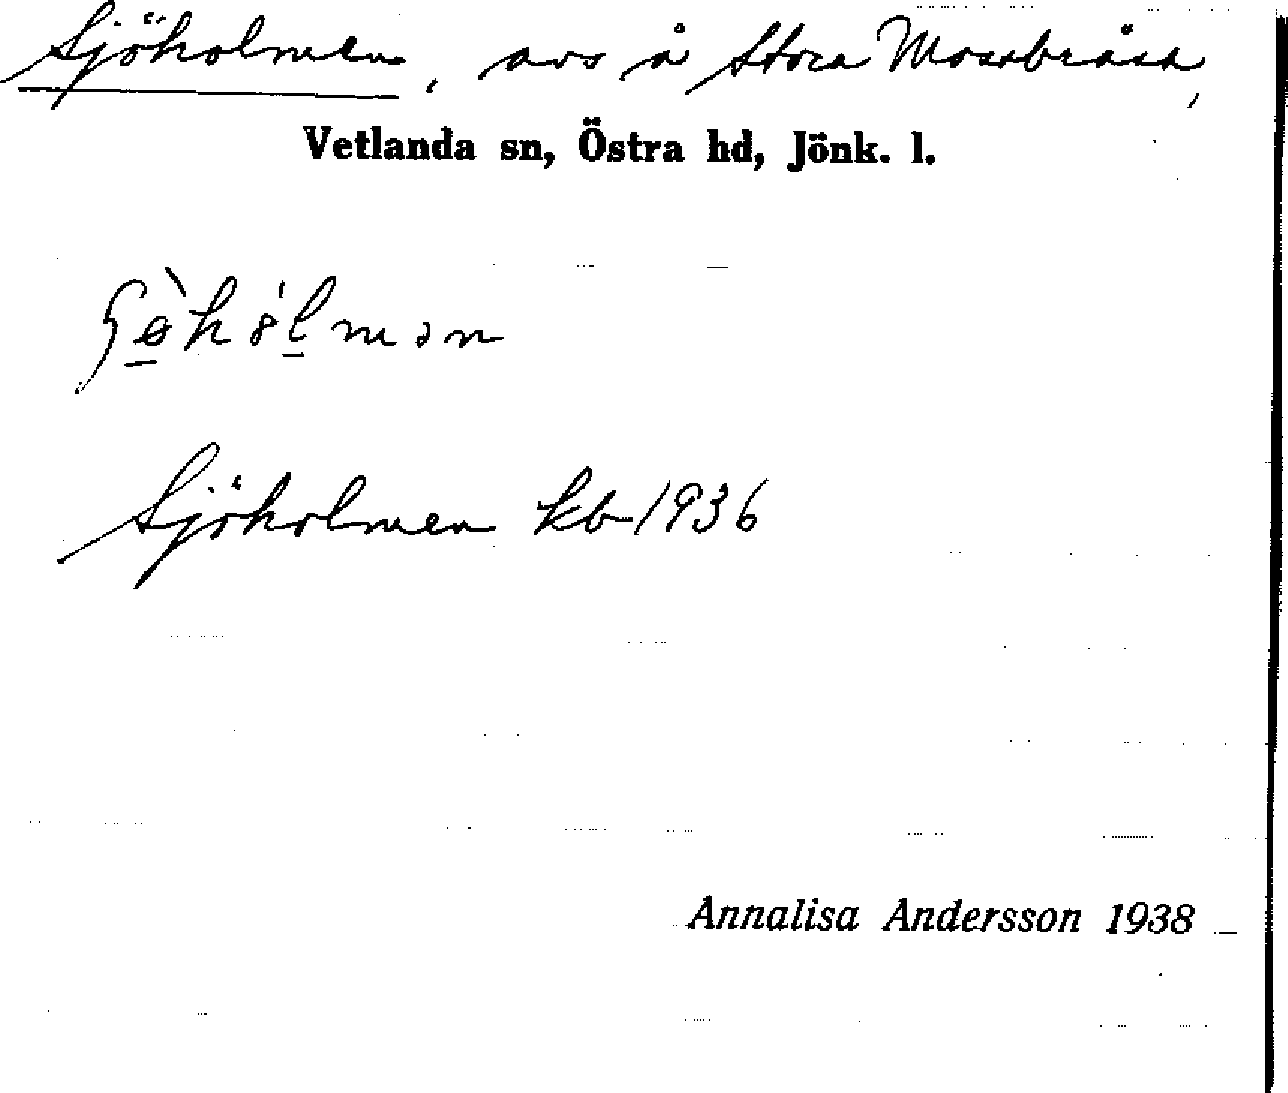 Sjöholmen, avs å Stora Mossbråsa,
Vetlanda sn, Östra hd, Jönk. l.
Sjöholmen kb 1936
Annalisa Andersson 1938